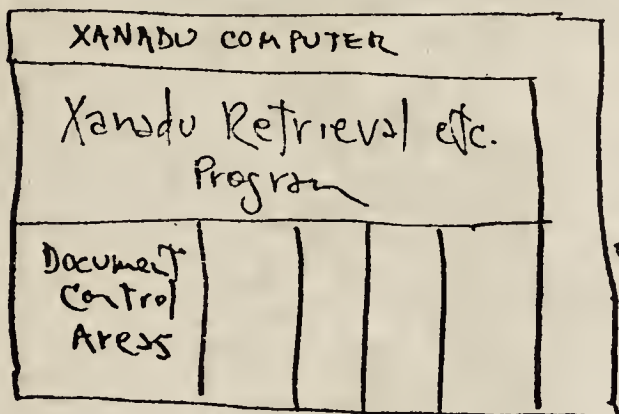 XANADU COMPUTER
Xanadu Retrieval etc.
Program
Document
Control
Areas